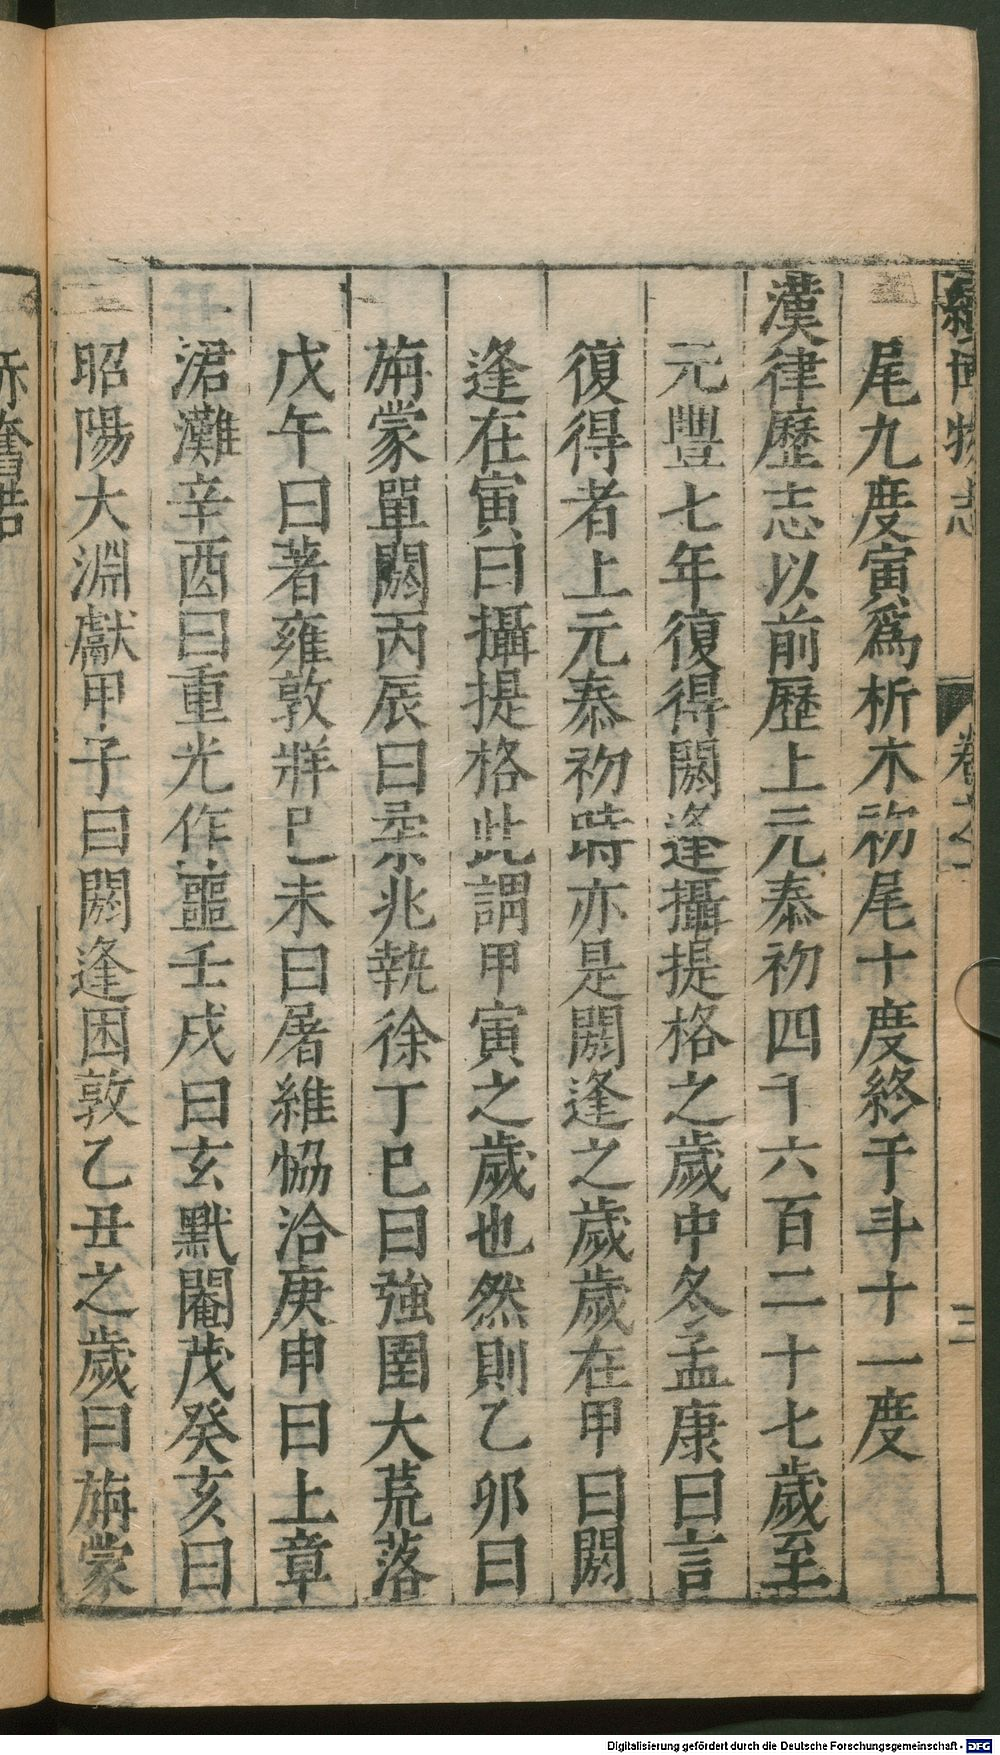 續博物志
卷之一
三
尾九度寅爲析木初尾十度終于斗十一度
漢律歷志以前歷上元泰初四千六百二十七歲至
元豐七年復得閼逢攝提格之歲中冬孟康曰言
復得者上元泰初時亦是閼逢之歲歲在甲曰閼
逢在寅曰攝提格此謂甲寅之歲也然則乙卯曰
旃蒙單閼丙辰曰柔兆執徐丁巳曰強圉大荒落
戊午曰著雍敦牂巳未曰屠維協洽庚申曰上章
涒灘辛酉曰重光作噩壬戌曰玄黓閹茂癸亥曰
昭陽大淵獻甲子曰閼逢困敦乙丑之歲曰旃蒙
Digitalisierung gefördert durch die Deutsche Forschungsgemeinschaft - DFG